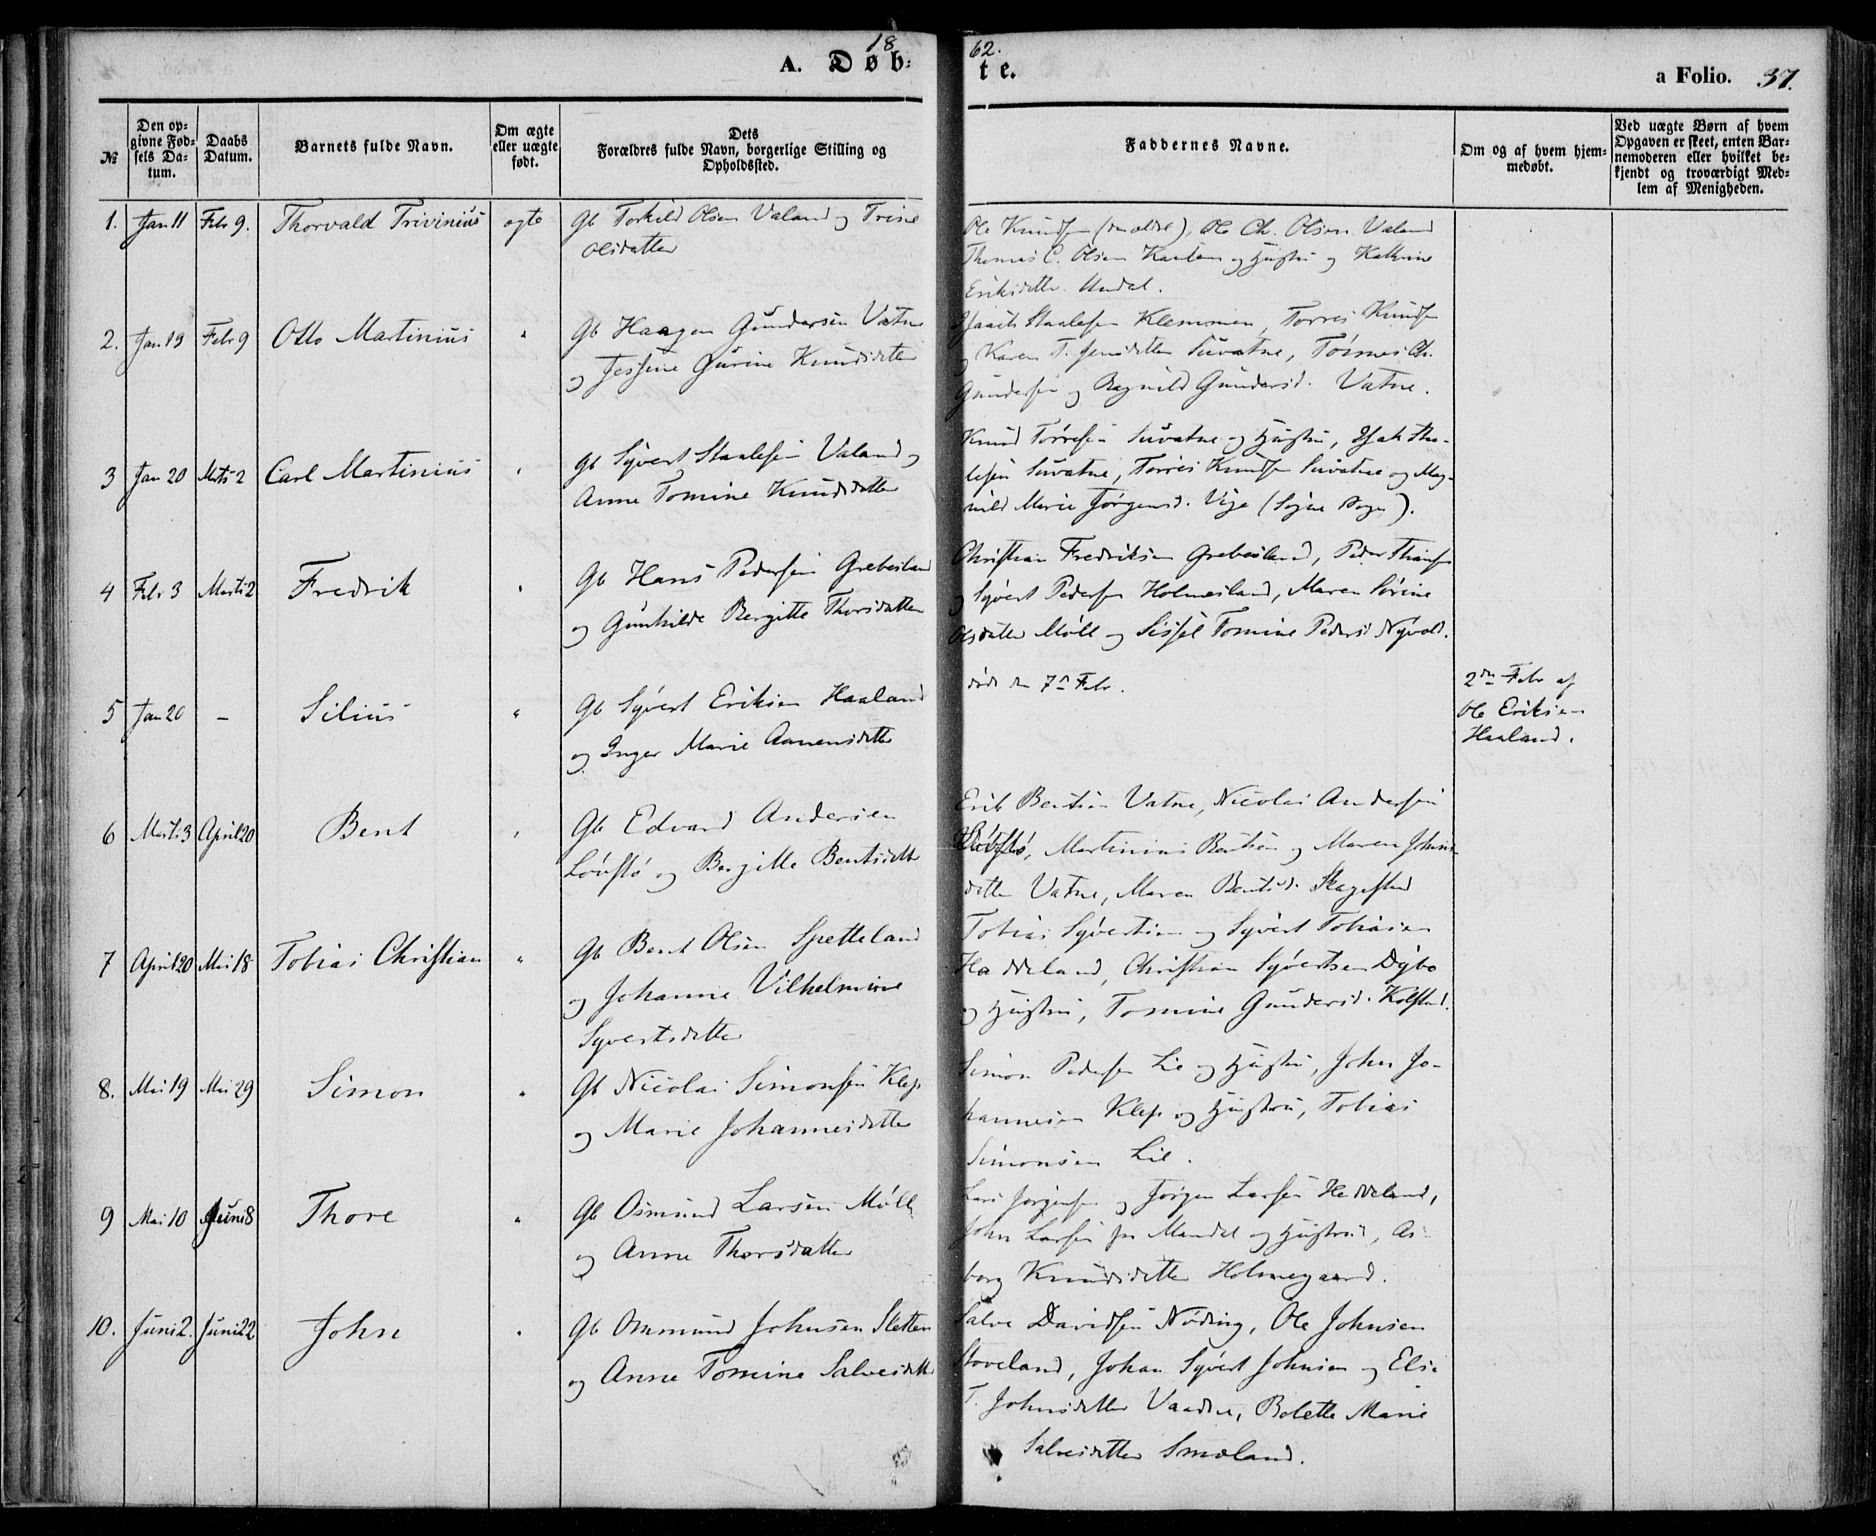 1862.
A. Døbte.
a Folio. 37.
№
Den opgivne Fødsels Datum.
Daabs Datum.
Barnets fulde Navn.
Om ægte eller uægte født.
Dets Forældres fulde Navn, borgerlige Stilling og Opholdssted.
Faddernes Navne.
Om og af hvem hjemmedøbt.
Ved uægte Børn af hvem Opgaven er skeet, enten Barnemoderen eller hvilket bekjendt og troværdigt Medlem af Menigheden.
1. Jan 11 Febr 9. Thorvald Trivinius ægte Gb Torkild Olsen Valand og Trine
Olsdatter
Ole Knudsen (den ældre), Ole Ch. Olsen Valand
Thomas C. Olsen og Hustru og Kathrine
Eriksdatter
2. Jan 19 Febr 9 Otto Martinius " Gb Haagen Gundersen Vatne
og Jessine Gurine Knudsdatter
Isaach Staalesen Klemmen, Torres Knudsen
og Karen T. Jensdatter Suvatne, Tørres Ch.
Gundersen og Ragnild Gundersd. Vatne.
3 Jan 20 Marts 2 Carl Martinius " Gb Syvert Staalesen Valand og
Anne Tomine Knudsdatter
Knud Tørresen Suvatne og Hustru, Isak Staalesen Suvatne, Torres Knudsen Suvatne og Magnild Marie Jørgensd. Vige (Søgne Sogn).
4 Febr 3 Marts 2 Fredrik " Gb Hans Pedersen Grebesland
og Gunhilde Bergitte Thorsdatter
Christian Fredriksen Grebesland, Peder
og Syvert Pedersen Holmesland, Maren Sørine
Olsdatter Møll og Sissel Tomine Pedersd Nyvold.
5 Jan 20 — Silius " Gb Syvert Eriksen Haaland
og Inger Marie Aanensdatter
død den 7de Febr.
2den Febr af
Ole Eriksen
Haaland.
6 Marts 3 April 20 Bent " Gb Edvard Andersen
Løvstø og Bergitte Bentsdatter
Erik Bentsen Vatne, Nicolai Andersen
Løvstø, Martinius Bentsen og Maren Johnsdatter Vatne, Maren Bentsd. Skagestad
7 April 20 Mai 18 Tobias Christian " Gb Bent Olsen Spetteland
og Johanne Vilhelmine
Syvertsdatter
Tobias Syvertsen og Syvert Tobiasen
Haddeland, Christian Syvertsen Dybo
og Hustru, Tomine Gundersd. Kolstad.
8. Mai 19 Mai 29 Simon " Gb Nicolai Simonsen Klep
og Marie Johannesdatter
Simon Pedersen Lie og Hustru, John Johannesen Klep og Hustru, Tobias
Simonsen Lie.
9 Mai 10 Juni 8 Thore " Gb Osmund Larsen Møll
og Anne Thorsdatter
Lars Jørgensen og Jørgen Larsen Heddeland,
John Larsen fra Mandal og Hustru, Asborg Knudsdatter Holmegaard.
10. Juni 2. Juni 22 John " Gb Ommund Johnsen Sletten
og Anne Tomine Salvesdatter
Salve Davidsen Nøding, Ole Johnsen
Stoveland, Johan Syvert Johnsen og Else
T. Johnsdatter Vaadne, Bolette Marie
Salvesdatter Smaland.